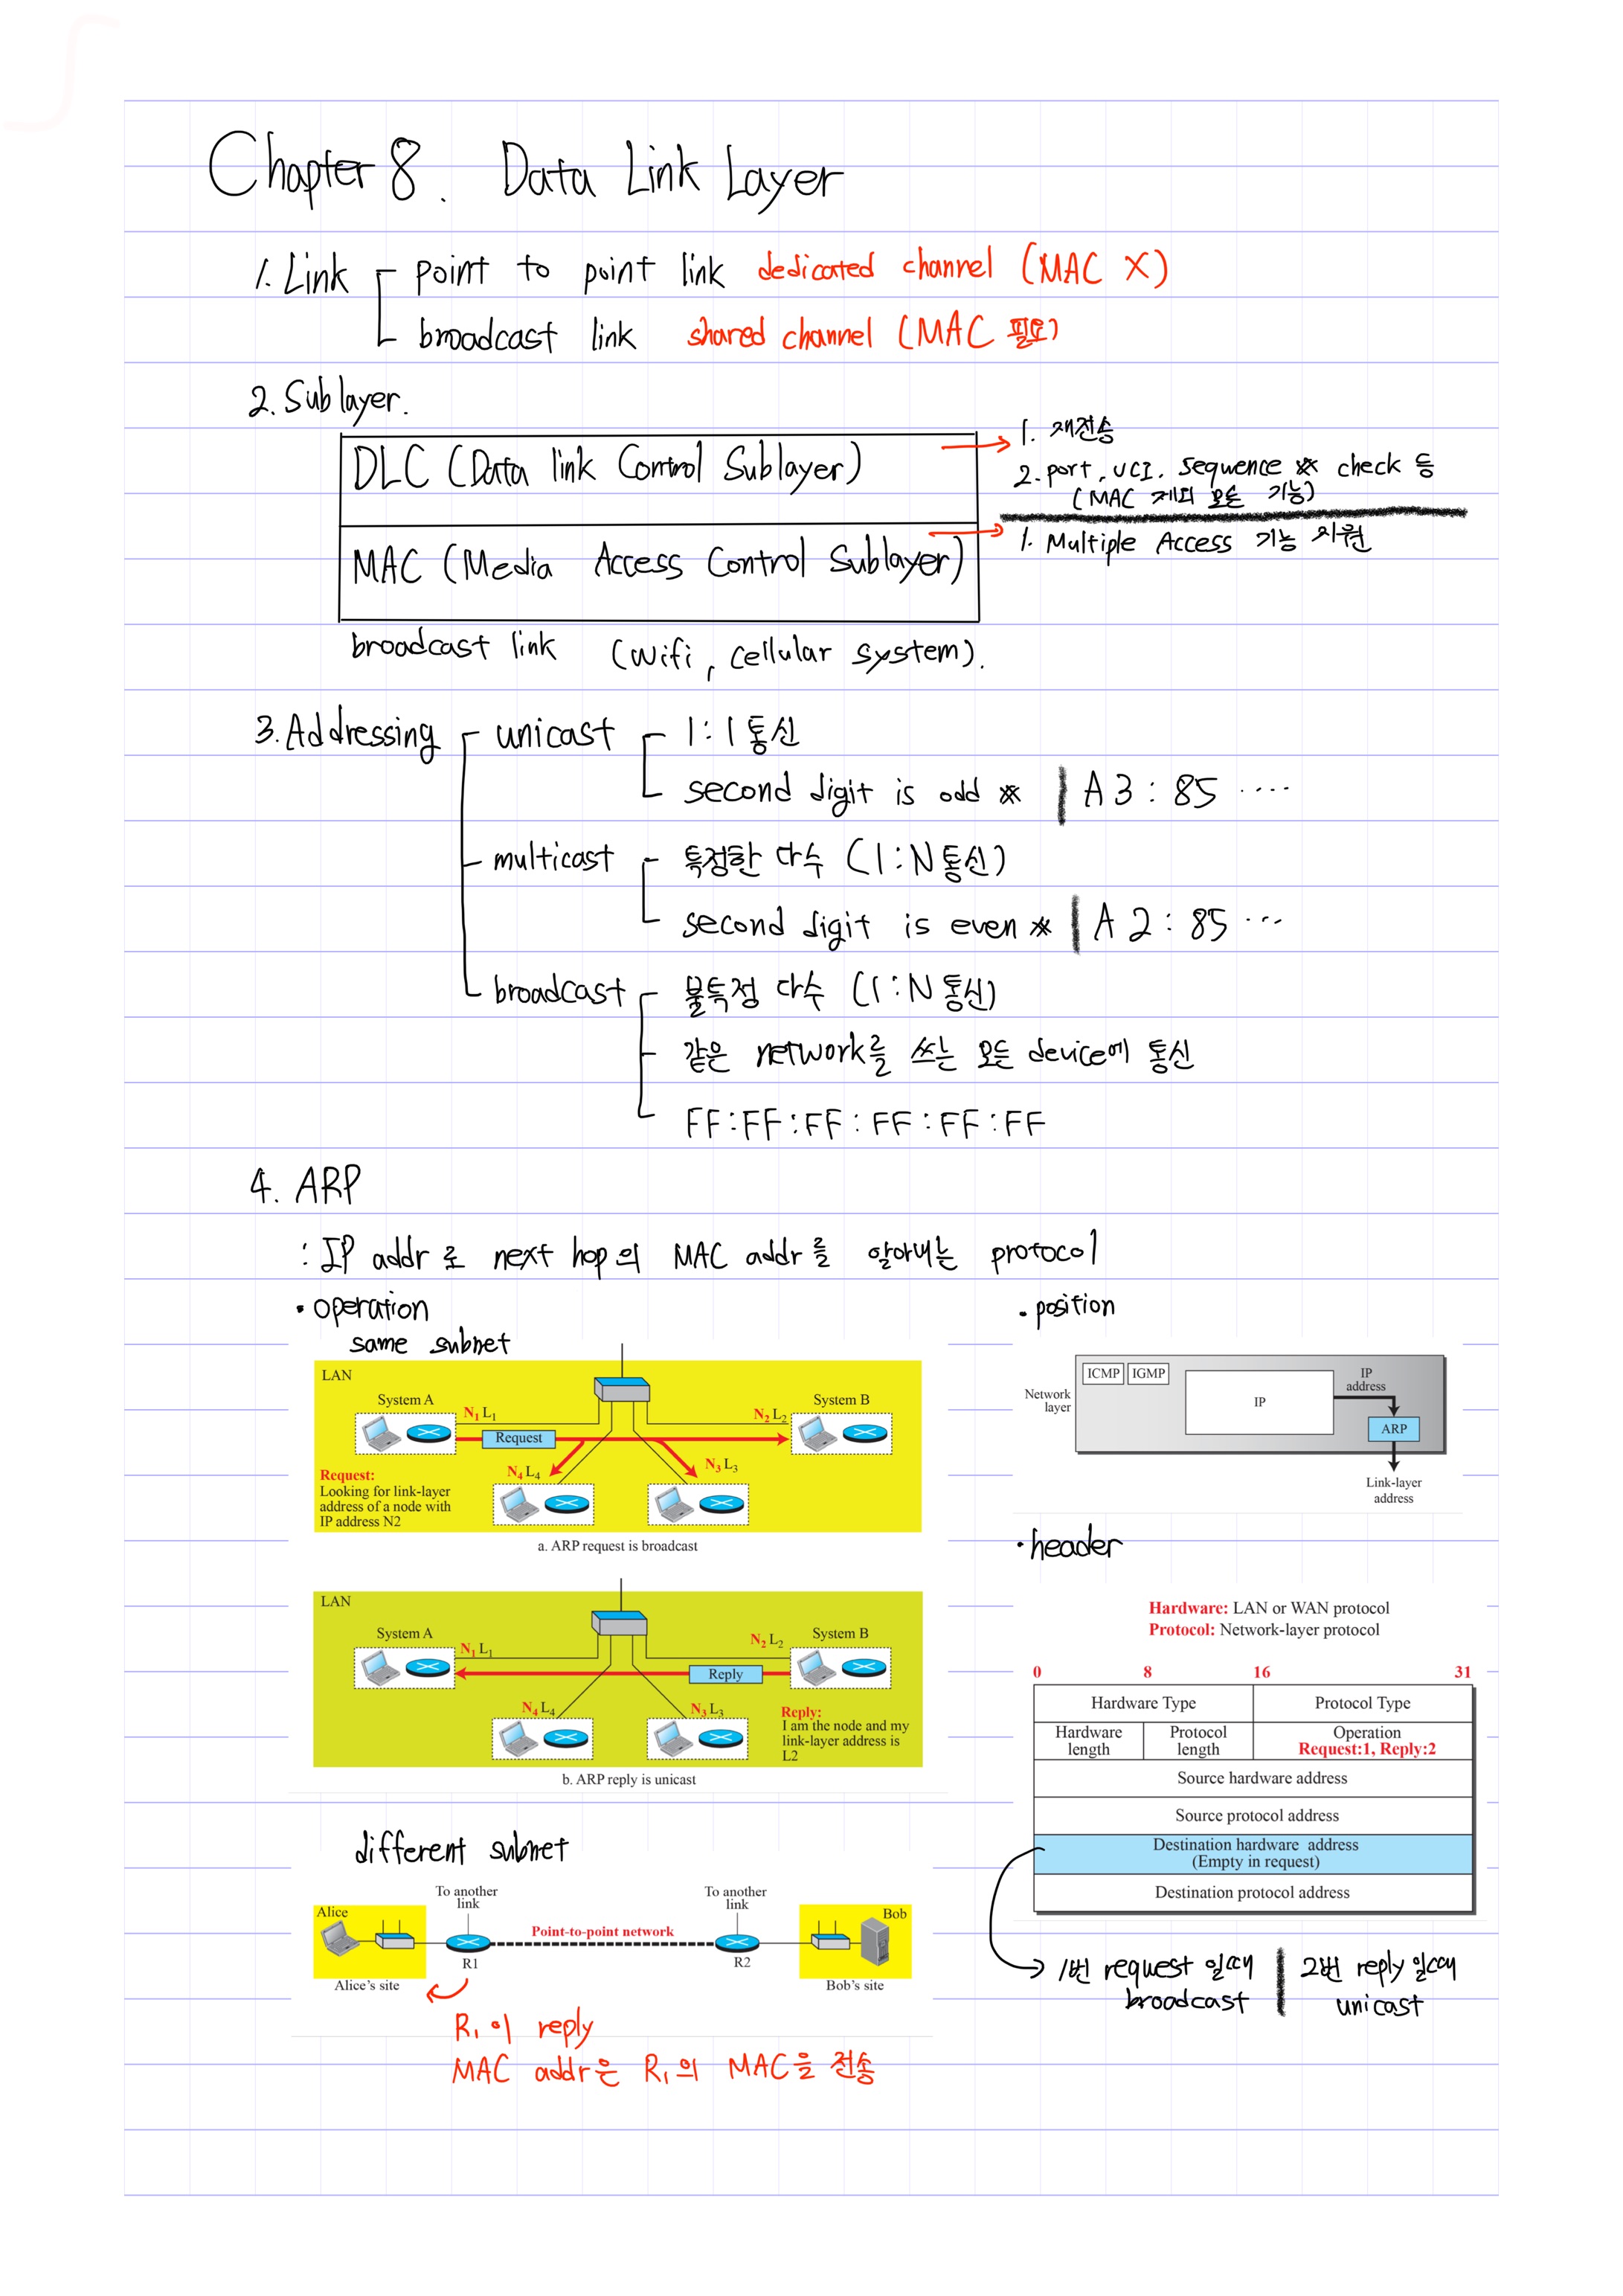 Chapter 8. Data Link Layer
1. Link
point to point link dedicated channel (MAC X)
broadcast link shared channel (MAC 필요)
2. Sublayer.
DLC (Data link Control Sublayer)
1. 재전송
2. port, UCI, sequence * check 등
(MAC 제외 모든 기능)
MAC (Media Access Control Sublayer)
1. Multiple Access 기능 지원
broadcast link (wifi, cellular system).
3. Addressing
unicast
1:1 통신
second digit is odd * | A3:85 ....
multicast
특정한 다수 (1:N 통신)
second digit is even * | A2:85 ...
broadcast
불특정 다수 (1:N 통신)
같은 network를 쓰는 모든 device에 통신
FF:FF:FF:FF:FF:FF
4. ARP
: IP addr로 next hop의 MAC addr를 알아내는 protocol
• operation
same subnet
LAN
System A
System B
N1 L1
N2 L2
Request
N4 L4
N3 L3
Request:
Looking for link-layer
address of a node with
IP address N2
a. ARP request is broadcast
LAN
System A
System B
N1 L1
N2 L2
Reply
N4 L4
N3 L3
Reply:
I am the node and my
link-layer address is
L2
b. ARP reply is unicast
different subnet
To another
link
To another
link
Alice
Bob
Point-to-point network
R1
R2
Alice's site
Bob's site
R1이 reply
MAC addr은 R1의 MAC을 전송
• position
ICMP
IGMP
IP
IP
address
Network
layer
ARP
Link-layer
address
• header
Hardware: LAN or WAN protocol
Protocol: Network-layer protocol
0 8 16 31
Hardware Type
Protocol Type
Hardware
length
Protocol
length
Operation
Request:1, Reply:2
Source hardware address
Source protocol address
Destination hardware address
(Empty in request)
Destination protocol address
1번 request 일때
broadcast
2번 reply 일때
unicast